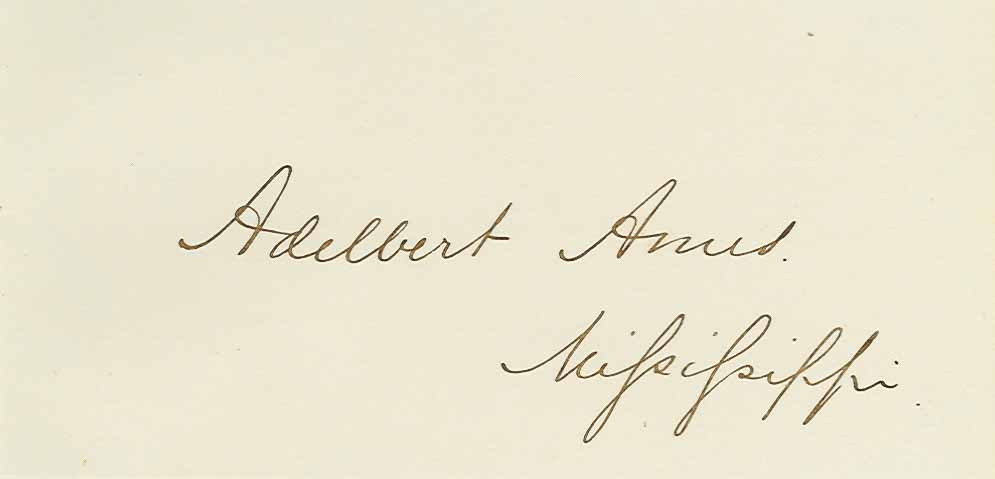 Adelbert Ames.
Mississippi.